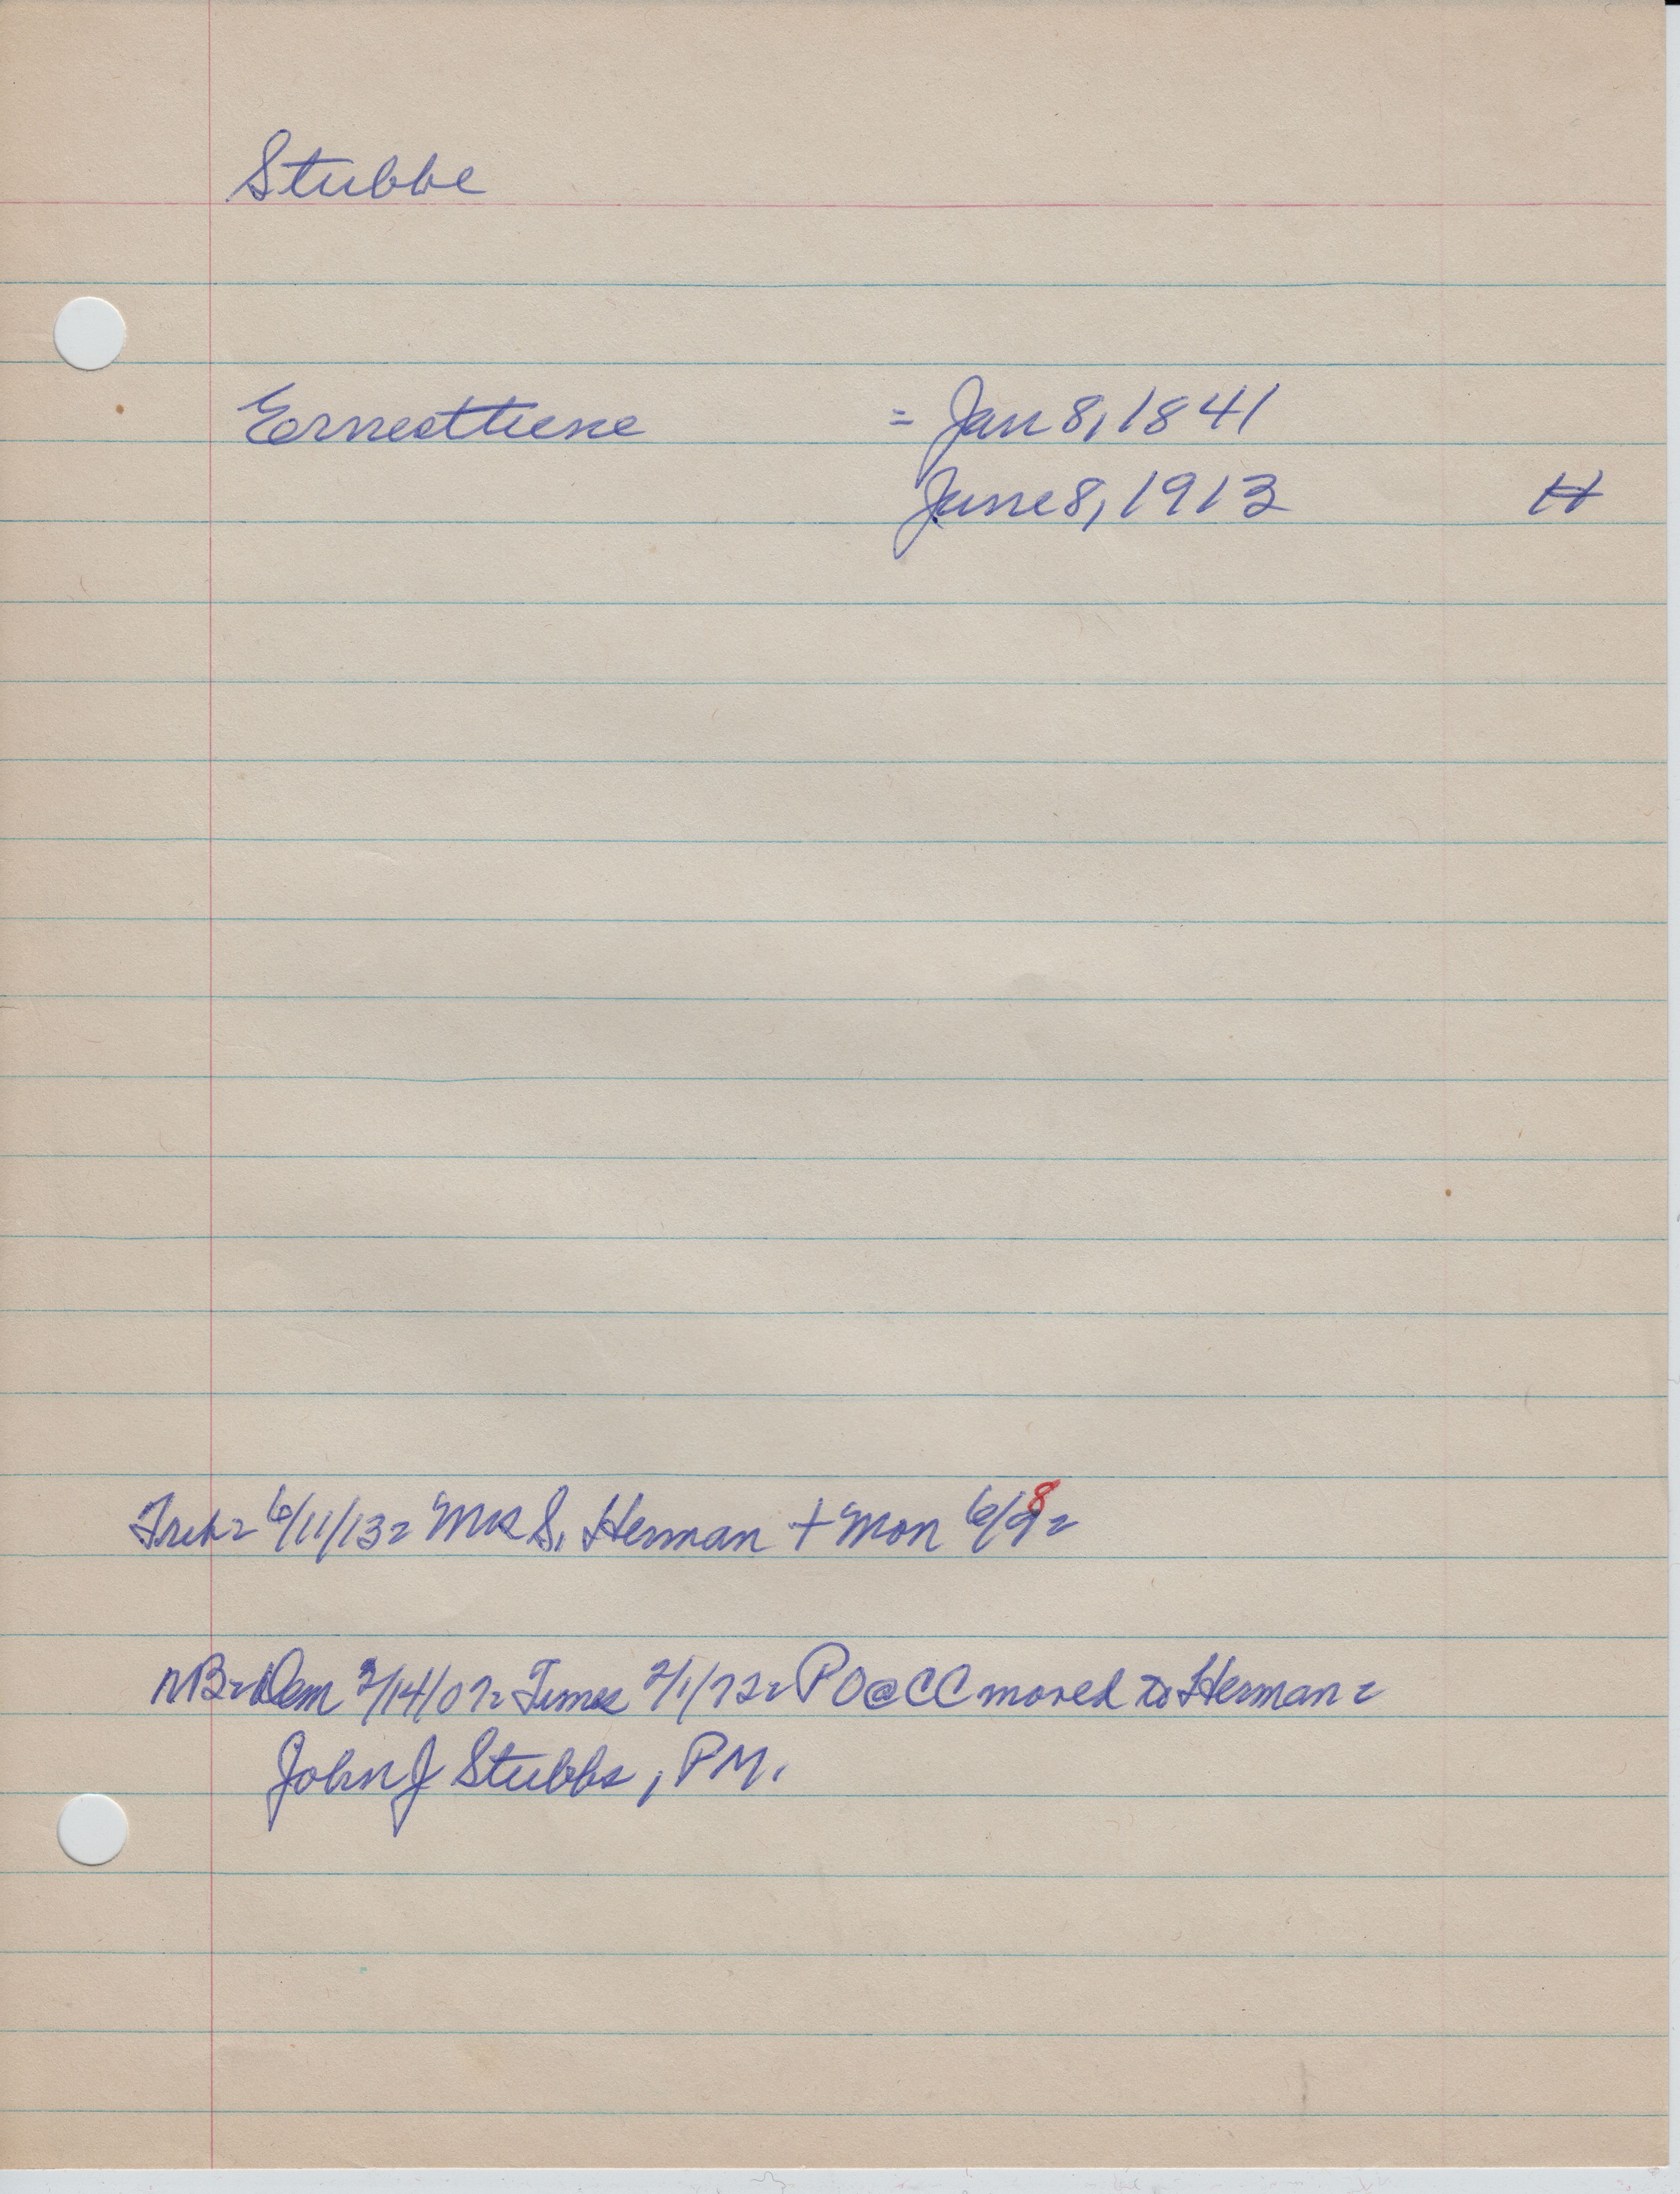 Stubbe
Ernesttiene = Jan 8, 1841
June 8, 1913 H
6/11/13 = Mrs S. Herman + Mon 6/9 8 =
NB = Dem 2/14/07 = Times 2/1/72 = PO @ CC moved to Herman =
John J Stubbs, PM.